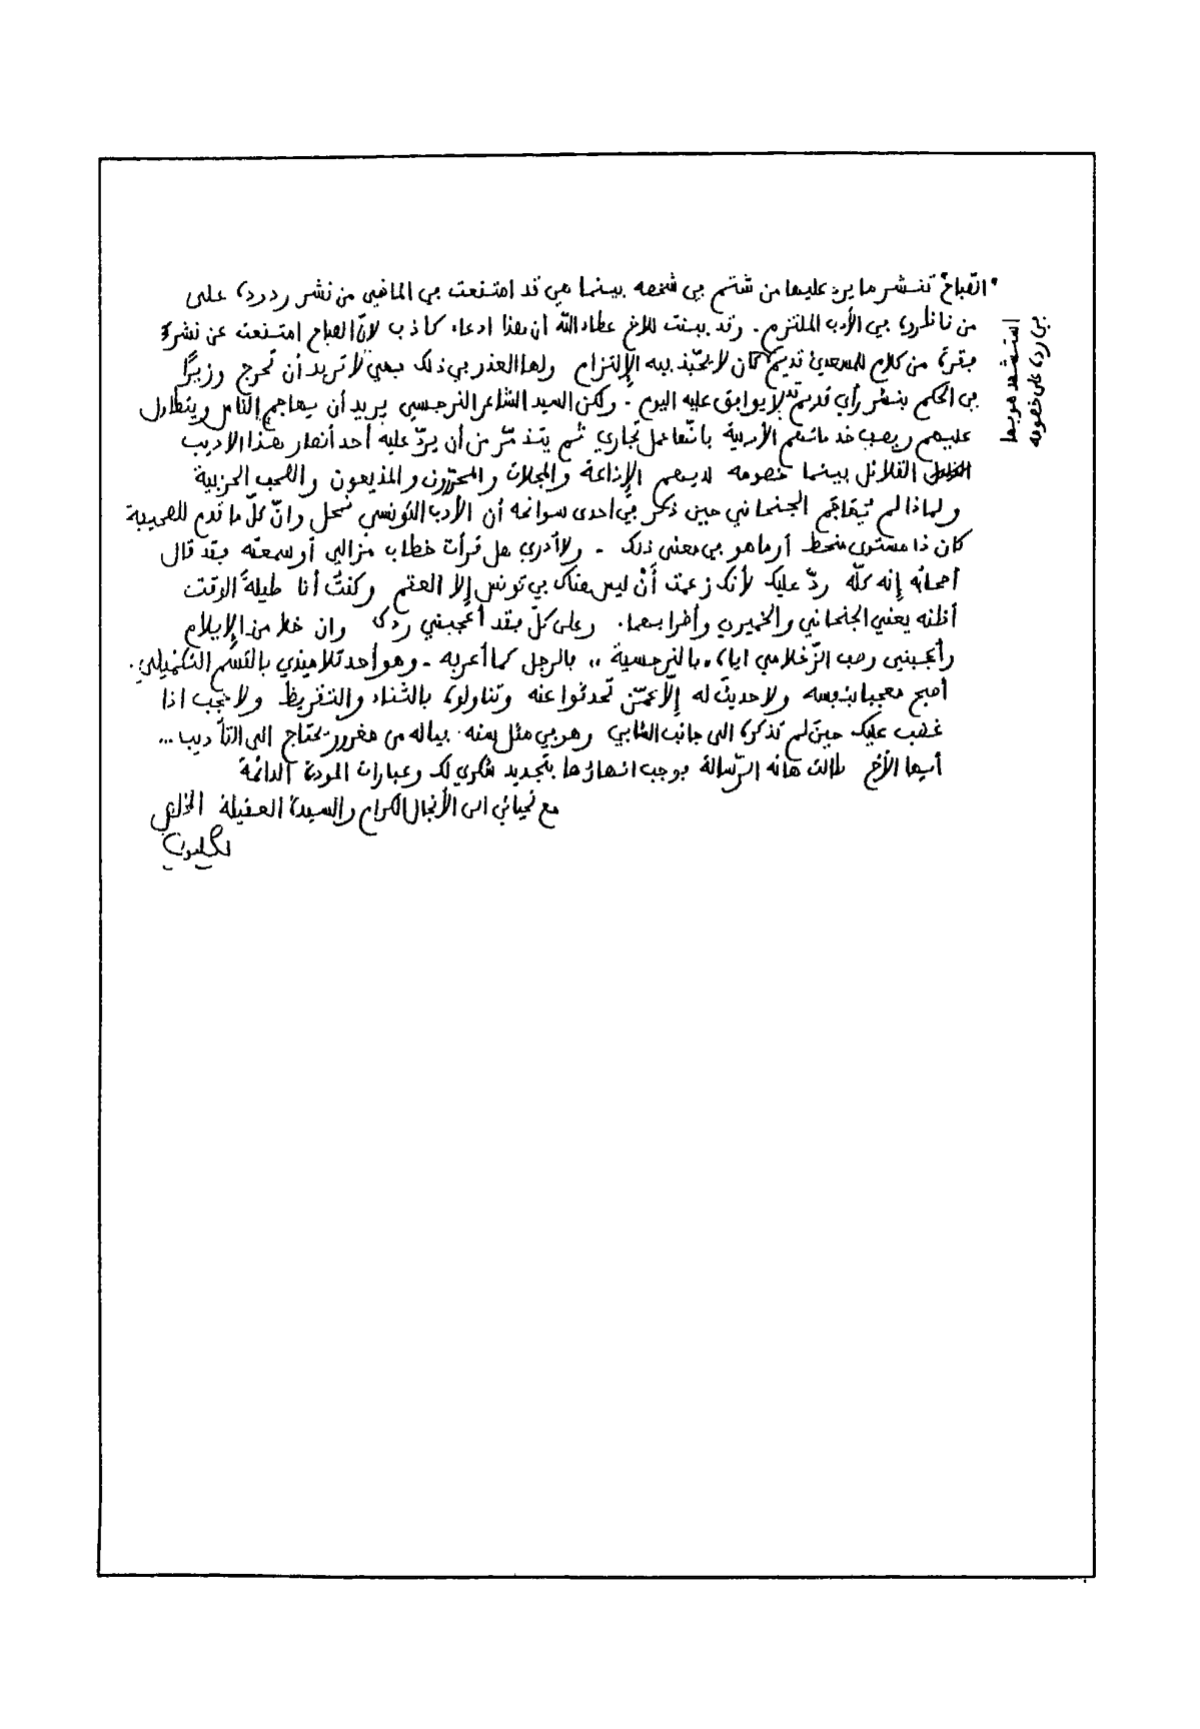 "الصباح" تنشر ما يرد عليها من شتم في شخصه بينما هي قد امتنعت في الماضي من نشر ردوده على
من ناظروه في الأدب الملتزم. وقد بينت للاخ عطاء الله أن هذا ادعاء كاذب لانّ الصباح امتنعت عن نشر
فقرة من كلام للمسعدي قديم كان لا يحبّذ فيه الإلتزام ولها العذر في ذلك فهي لا تريد أن تحرج وزيرًا
في الحكم بنشر رأي قديم له لا يوافق عليه اليوم. ولكن السيد الشاعر النرجسي يريد أن يهاجم الناس ويتطاول
عليهم ويصف خدماتهم الأدبية بانّها عمل تجاري ثم يتذمّر من أن يردّ عليه أحد أنصار هذا الاديب
القلائل بينما خصومه لديهم الإذاعة والمجلات والمحررون والمذيعون والصحف الحزبية
ولماذا لم تهاجم الجنحاني حين ذكر في احدى سوانحه أن الأدب التونسي ضحل وانّ كلّ ما قدم للصحيفة
كان ذا مستوى منحط أو ما هو في معنى ذلك. ولا أدري هل قرأت خطاب مزالي أو سمعته فقد قال
إنه كلّه ردّ عليك لأنك زعمت أنْ ليس هناك في تونس إلا العقم وكنتُ أنا طيلة الوقت
أظنه يعني الجنحاني والخميري وأضرابهما. وعلى كلّ فقد أعجبني ردك وان خلا من الإيلام
وأعجبني وصف الزّغلامي اياه "بالنرجسية" فالرجل كما أعرفه. وهو أحد تلاميذي بالقسم التكميلي.
أصبح معجبا بنفسه ولا حديث له إلّا عمّن تحدثوا عنه وتناولوه بالثناء والتقريظ ولا عجب اذا
غضب عليك حين لم تذكره الى جانب الشابي وهو في مثل سنه. فياله من مغرور يحتاج الى التأديب ...
أيها الأخ طالت هاته الرّسالة فوجب انهاؤها بتجديد شكري لك وعبارات المودة الدائمة
مع تحياتي الى الأنجال الكرام والسيدة العقيلة
استشهد هو بها
في رده على خصومه